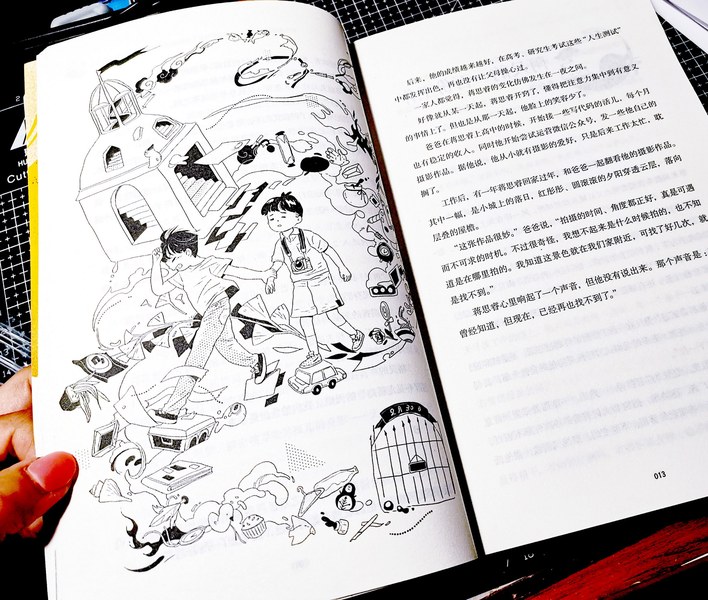 2月30日
后来，他的成绩越来越好，在高考、研究生考试这些“人生测试”
中都发挥出色，再也没有让父母操心过。
一家人都觉得，蒋思睿的变化仿佛发生在一夜之间。
好像就从某一天起，蒋思睿开窍了，懂得把注意力集中到有意义
的事情上了。但也是从那一天起，他脸上的笑容少了。
爸爸在蒋思睿上高中的时候，开始接一些写代码的活儿，每个月
也有稳定的收入。同时他开始尝试运营微信公众号，发一些他自己的
摄影作品。据他说，他从小就有摄影的爱好，只是后来工作太忙，耽
搁了。
工作后，有一年蒋思睿回家过年，和爸爸一起翻看他的摄影作品。
其中一幅，是小城上的落日，红彤彤、圆滚滚的夕阳穿透云层，落向
层叠的屋檐。
“这张作品很妙。”爸爸说，“拍摄的时间、角度都正好，真是可遇
而不可求的时机。不过很奇怪，我想不起来是什么时候拍的，也不知
道是在哪里拍的。我知道这景色就在我们家附近，可找了好几次，就
是找不到。”
蒋思睿心里响起了一个声音，但他没有说出来。那个声音是：
曾经知道，但现在，已经再也找不到了。”
013